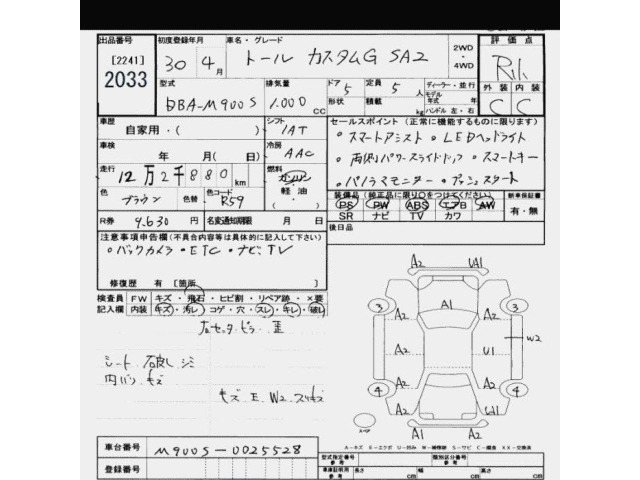 出品番号 初度登録年月 車名・グレード 評価点
[2241] 30年4月 トール カスタムG SA2 2WD・4WD
2033
型式 排気量 ドア 定員 ディーラー・並行 外装 内装
DBA-M900S 1.000 CC 5 形状 5人 積載 kg モデル年式 年 ハンドル 左・右 C C
車歴 シフト セールスポイント (正常に機能するものに限ります)
自家用・( ) IAT ・スマートアシスト ・LEDヘッドライト
車検 冷房
年 月(日) AAC ・両側パワースライドドア ・スマートキー
走行 燃料
12万2千880km ガソリン 軽油 ・パノラマモニター ・プッシュスタート
色 色替 色コード 装備品 (純正品に限り○をつけてください) 新車保証書
ブラウン R59 PS PW ABS エアB AW 有・無
SR ナビ TV カワ
R券 9.630円 名変通知期限 月 日 後日品
注意事項申告欄(不具合内容等は具体的に記入して下さい)
・バックカメラ ・ETC ・ナビ、TV
修復歴 有 [箇所 ]
検査員記入欄 FW キズ・飛石・ヒビ割・リペア跡・×要
内装 キズ・汚レ・コゲ・穴・スレ・キレ・破レ
シート
内バン キズ
キズ E. W2
A2 UA1
3 A2 A1 A2 3
A2 U1 W2
4 A2 A2 4
A1 A2
スペア
A-キズ E-エクボ U-凹み W-補修跡 S-サビ C-腐食 XX-交換済
車台番号 M900S-0025528 型式指定番号 参考 類別区分番号 参考
登録番号 車庫証明用 参考 長さ cm 幅 cm 高さ cm